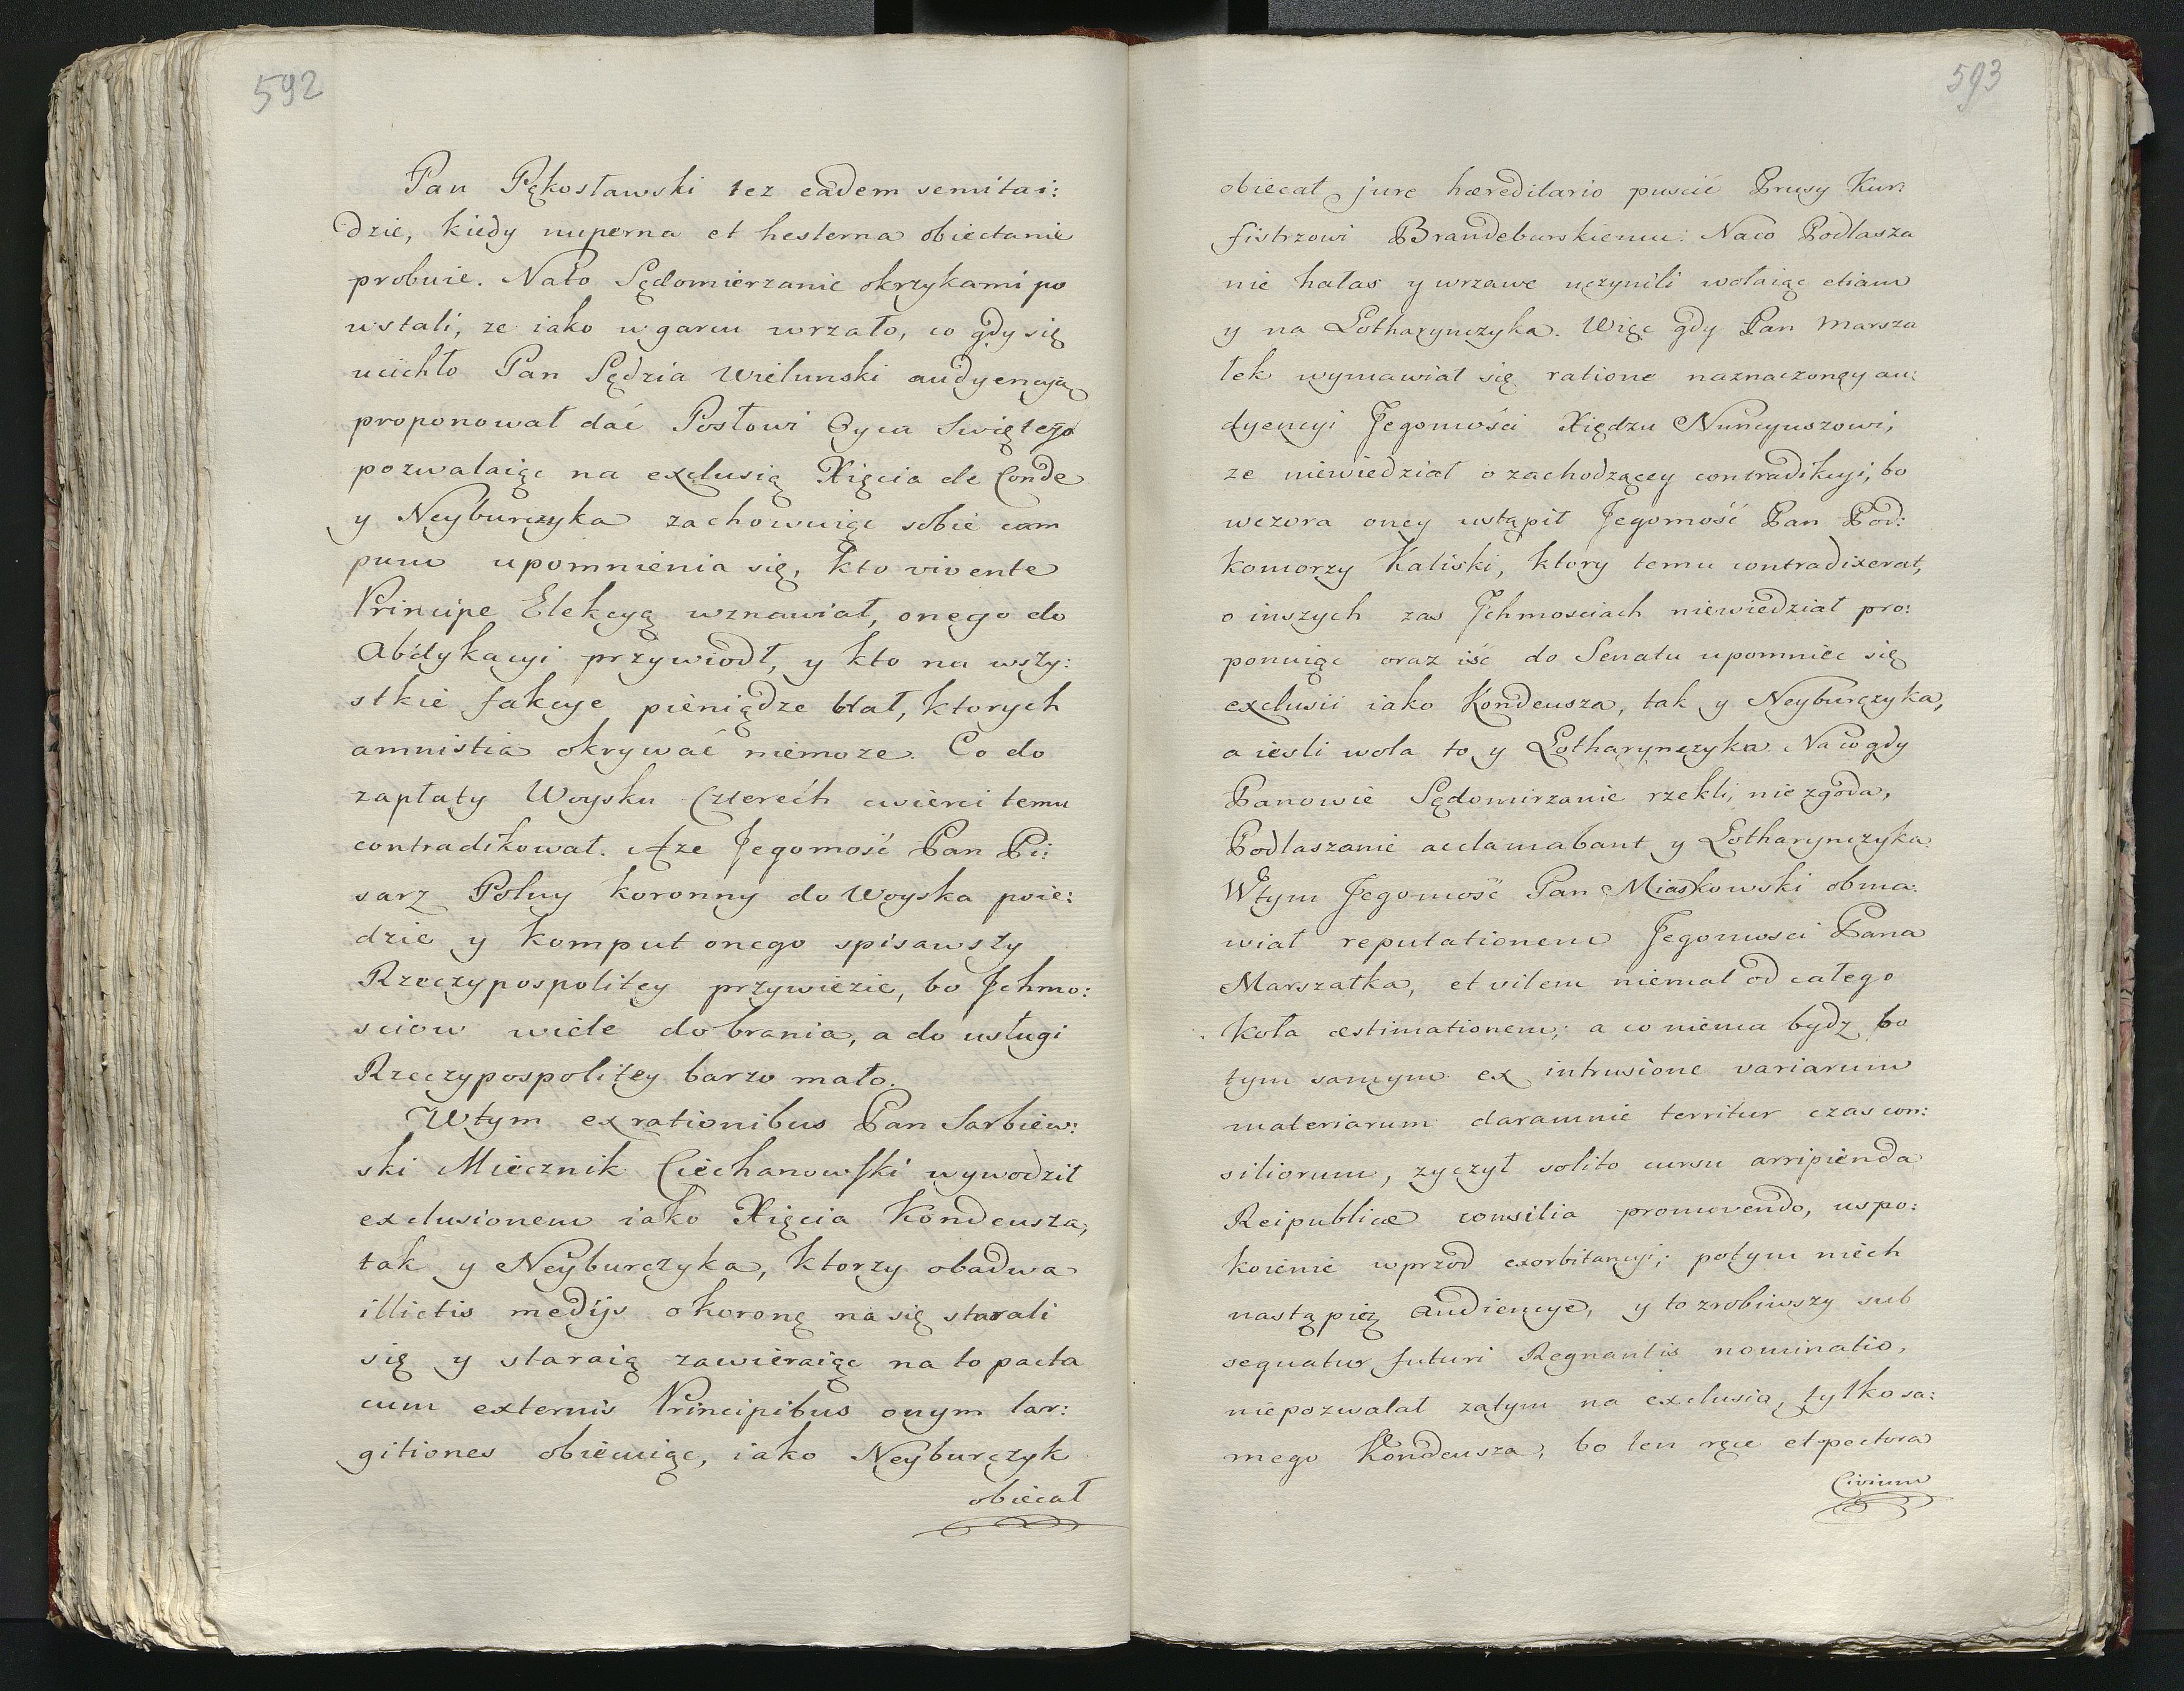 592
Pan Pękosławski tez eadem semita i:
dzie, kiedy nuperna et hesterna obiectanie
probuie. Nato Sędomierzanie okrzykami po
wstali, ze iako w garcu wrzało, co gdy się
ucichło Pan Sędzia Wielunski audyencyą
proponował dać Posłowi Oyca Swiętego
pozwalaiąc na exclusią Xięcia de Conde
y Neyburczyka zachowuiąc sobie cam
pum upomnienia się, kto vivente
Principe Elekcyą wznawiał, onego do
Abdykacyi przywiodł, y kto na wszy:
stkie fakcye pieniądze brał, ktorych
amnistia okrywać niemoze. Co do
zapłaty Woysku Czterech cwierci temu
contradikował. Aze Jegomość Pan Pi:
sarz Polny koronny do Woyska poie:
dzie y komput onego spisawszy
Rzeczypospolitey przywiezie, bo Jchmo:
sciow wiele do brania, a do usługi
Rzeczypospolitey barzo mało.
Wtym ex rationibus Pan Sarbiew:
ski Miecznik Ciechanowski wywodził
exclusionem iako Xięcia Kondeusza,
tak y Neyburczyka, ktorzy obadwa
illictis medijs o koronę na się starali
się y staraią zawieraiąc na to pacta
cum externis Principibus onym lar:
gitiones obiecuiąc, iako Neyburczyk
obiecał
593
obiecał jure hæreditario puscić Prusy Kur:
fistrzowi Brandeburskiemu. Naco Podlasza
nie hałas y wrzawe uczynili wołaiąc etiam
y na Lotharynczyka. Więc gdy Pan Marsza
łek wymawiał się ratione naznaczoney au:
dyencyi Jegomości Xiędzu Nuncyuszowi,
ze niewiedział o zachodzącey contradikcyi, bo
wczora oney ustąpił Jegomość Pan Pod:
komorzy Kaliski, ktory temu contradixerat,
o inszych zas Jchmosciach niewiedział pro:
ponuiąc oraz iść do Senatu upomniec się
exclusii iako Kondeusza, tak y Neyburczyka,
a iesli wola to y Lotharynczyka. Naco gdy
Panowie Sędomirzanie rzekli, nie zgoda,
Podlaszanie acclamabant y Lotharynczyka.
Wtym Jegomość Pan Miaskowski obma:
wiał reputationem Jegomosci Pana
Marszałka, et vilem niemal od całego
koła æstimationem; a co niema bydz bo
tym samym ex intrusione variarum
materiarum daramnie territur czas con:
siliorum, zyczył solito cursu arripienda
Reipublicæ consilia promovendo, uspo:
koienie wprzod exorbitancyi; potym niech
nastąpię audiencye, y to zrobiwszy sub
sequatur futuri Regnantis nominatio,
niepozwalał zatym na exclusia, tylko sa:
mego Kondeusza, bo ten ręce et pectora
Civium